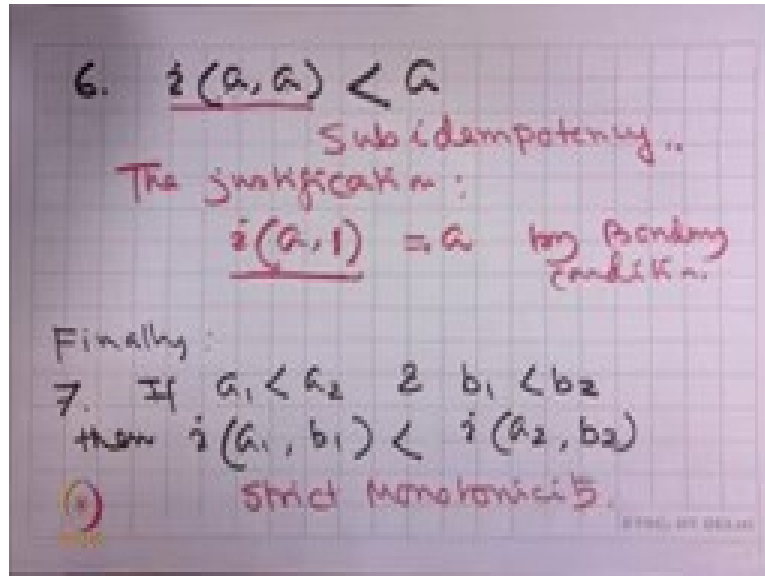 6. i(a,a) < a
Subidempotency..
The justification:
i(a,1) = a by Bondary
Condition.
Finally:
7. If a₁ < a₂ & b₁ < b₂
then i(a₁, b₁) < i(a₂, b₂)
Strict Monotonicity.
ETSC, IIT DELHI